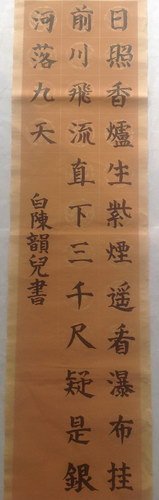 日照香爐生紫煙遥看瀑布挂
前川飛流直下三千尺疑是銀
河落九天
白陳韻兒書